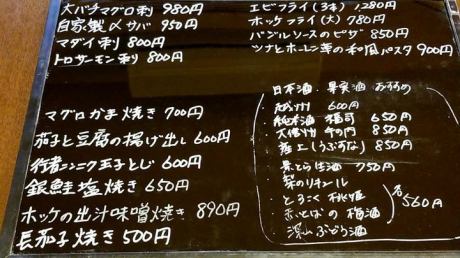 大バチマグロ刺 980円
自家製〆サバ 950円
マダイ刺 800円
トロサーモン刺 800円
マグロかま焼き 700円
茄子と豆腐の揚げ出し 600円
行者ニンニク玉子とじ 600円
銀鮭塩焼き 650円
ホッケの出汁味噌焼き 890円
長茄子焼き 500円
エビフライ(3本) 1,280円
ホッケフライ(大) 780円
バジルソースのピザ 850円
ツナとホーレン草の和風パスタ 900円
日本酒・果実酒 おすすめ
600円
純米酒 650円
850円
産土(うぶすな) 850円
生酒 750円
梨のリキュール
とろこく 桃姫
赤いとばの梅酒
深山ぶどう酒
各560円